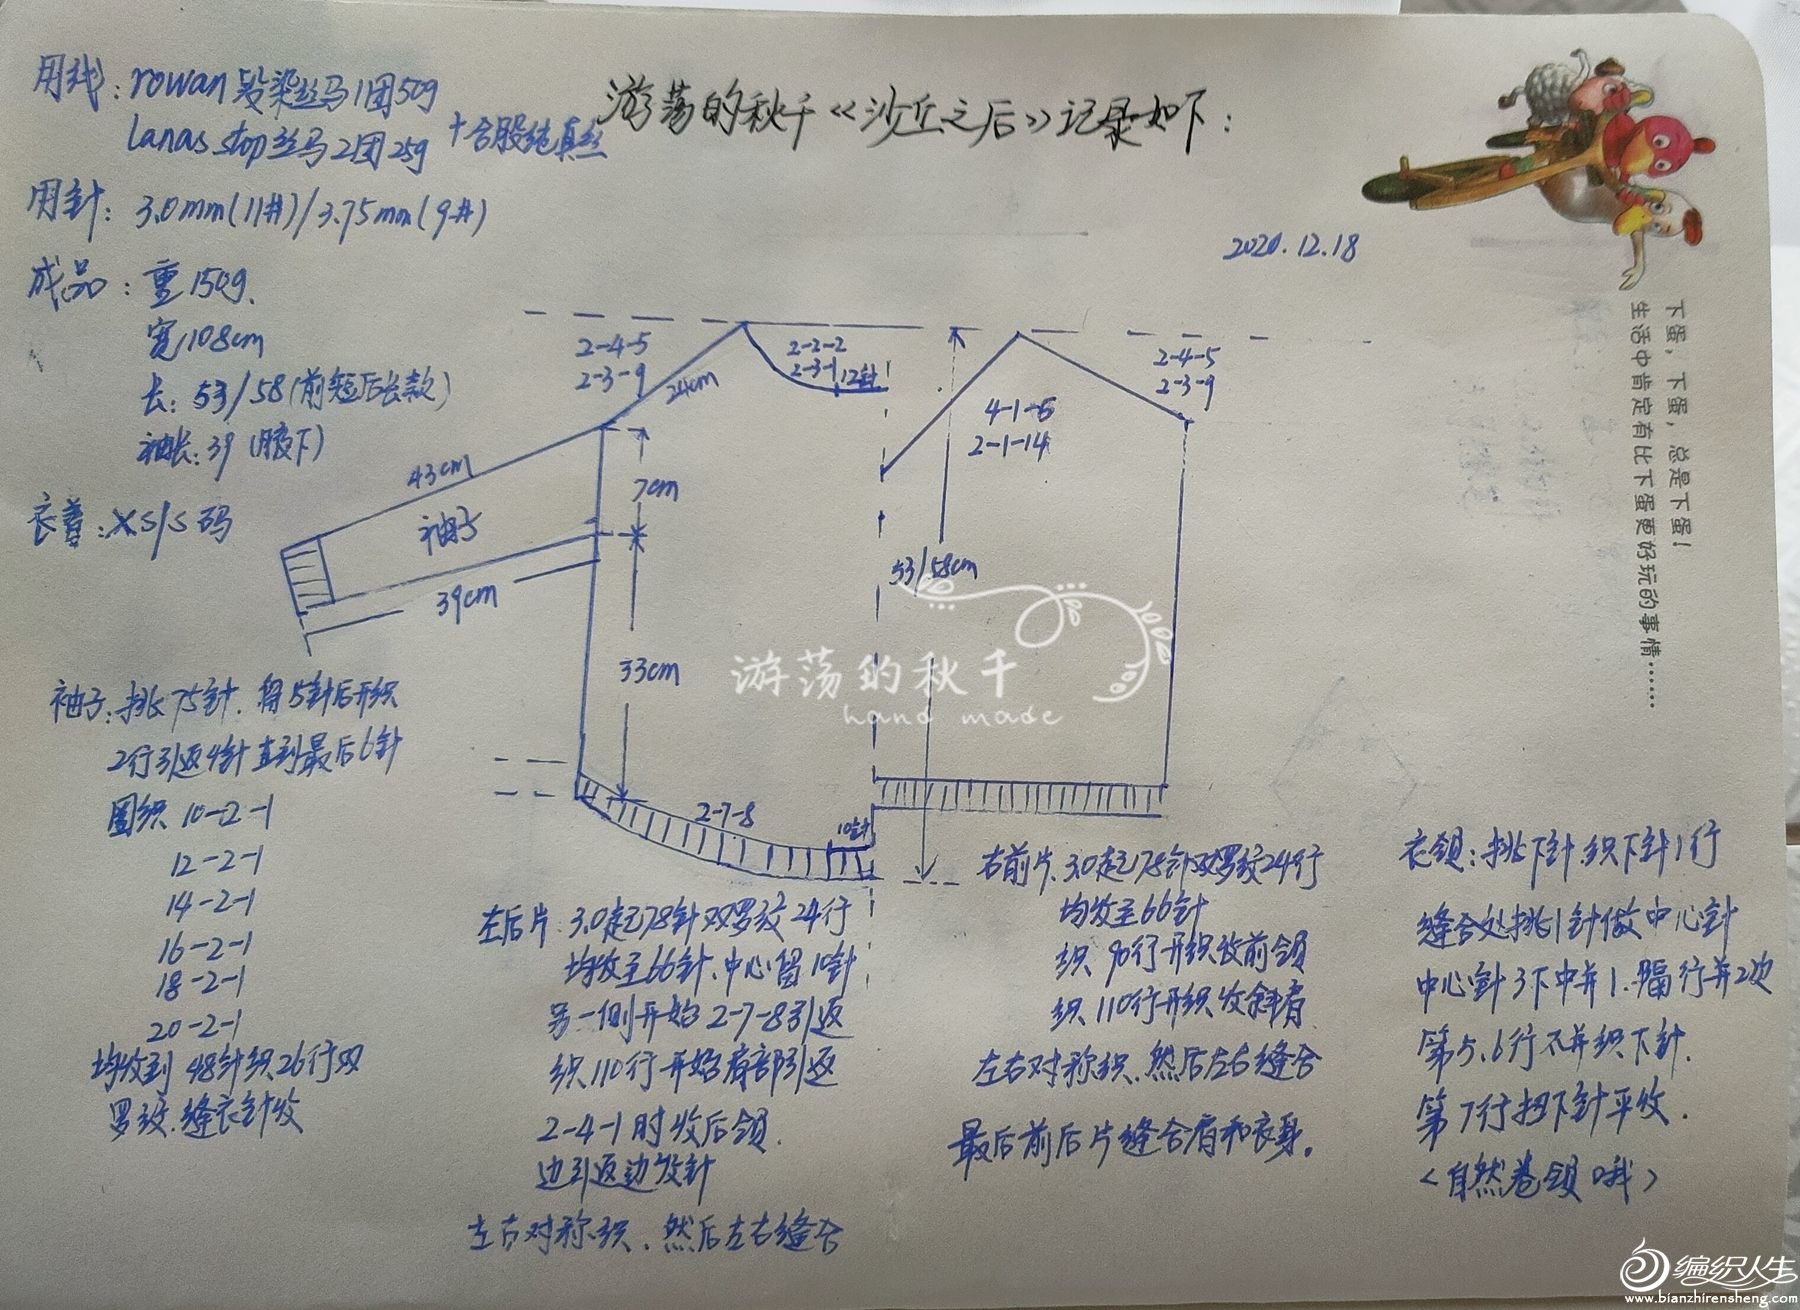 游荡的秋千《沙丘之后》记录如下：
2020.12.18
用线：rowan段染丝马1团50g
lanas stop丝马2团25g
+合股纯真丝
用针：3.0mm(11#)/3.75mm(9#)
成品：重150g、
宽108cm
长：53/58(前短后长款)
袖长：39(腋下)
衣着：XS/S码
2-4-5
2-3-9
24cm
2-2-2
2-3-1
12针
2-4-5
2-3-9
4-1-6
2-1-14
43cm
袖子
39cm
7cm
33cm
53/58cm
2-7-8
10针
游荡的秋千
hand made
袖子：挑75针、留5针后开织
2行引返4针直到最后6针
圈织10-2-1
12-2-1
14-2-1
16-2-1
18-2-1
20-2-1
均收到48针织26行双
罗纹、缝衣针收
左后片：3.0起78针双罗纹24行
均收至66针、中心留10针
另一侧开始2-7-8引返
织110行开始肩部引返
2-4-1时收后领、
边引返边收针
左右对称织、然后左右缝合
右前片、3.0起78针双罗纹24行
均收至66针
织90行开织收前领
织110行开织收斜肩
左右对称织、然后左右缝合
最后前后片缝合肩和衣身。
衣领：挑下针、织下针1行
缝合处挑1针做中心针
中心针3下中并1、隔行并2次
第5、6行不并织下针、
第7行扭下针平收、
<自然卷领哦>
下蛋，下蛋，总是下蛋！
生活中肯定有比下蛋更好玩的事情……
编织人生
www.bianzhirensheng.com